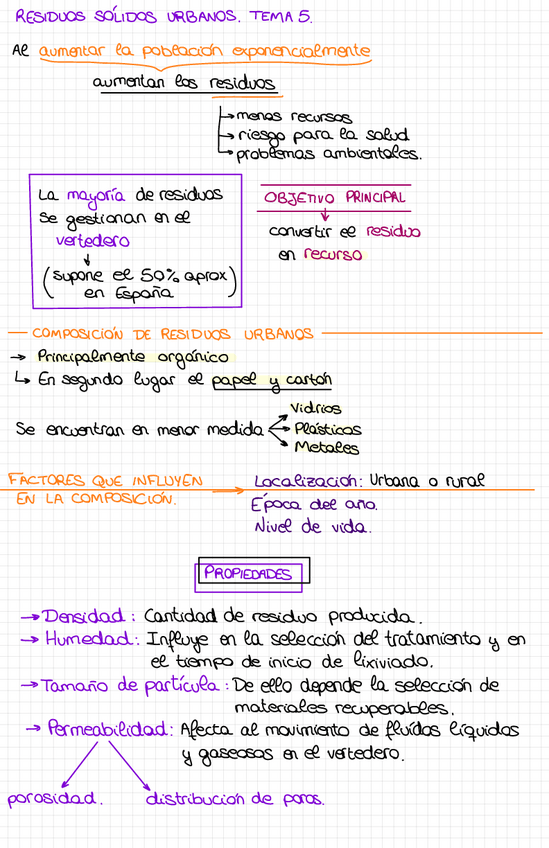 RESIDUOS SÓLIDOS URBANOS. TEMA 5.
Al aumentar la población exponencialmente
aumentan los residuos
→ menos recursos
→ riesgo para la salud
→ problemas ambientales.
La mayoría de residuos
se gestionan en el
vertedero
↓
(supone el 50% aprox
en España)
OBJETIVO PRINCIPAL
↓
convertir el residuo
en recurso
COMPOSICIÓN DE RESIDUOS URBANOS
→ Principalmente orgánico
↳ En segundo lugar el papel y cartón
Se encuentran en menor medida
→ Vidrios
→ Plásticos
→ Metales
FACTORES QUE INFLUYEN
EN LA COMPOSICIÓN. →
Localización: Urbana o rural
Época del año.
Nivel de vida.
PROPIEDADES
→ Densidad: Cantidad de residuo producida.
→ Humedad: Influye en la selección del tratamiento y en
el tiempo de inicio de lixiviado.
→ Tamaño de partícula: De ello depende la selección de
materiales recuperables.
→ Permeabilidad: Afecta al movimiento de fluídos líquidos
y gaseosos en el vertedero.
porosidad.
distribución de poros.